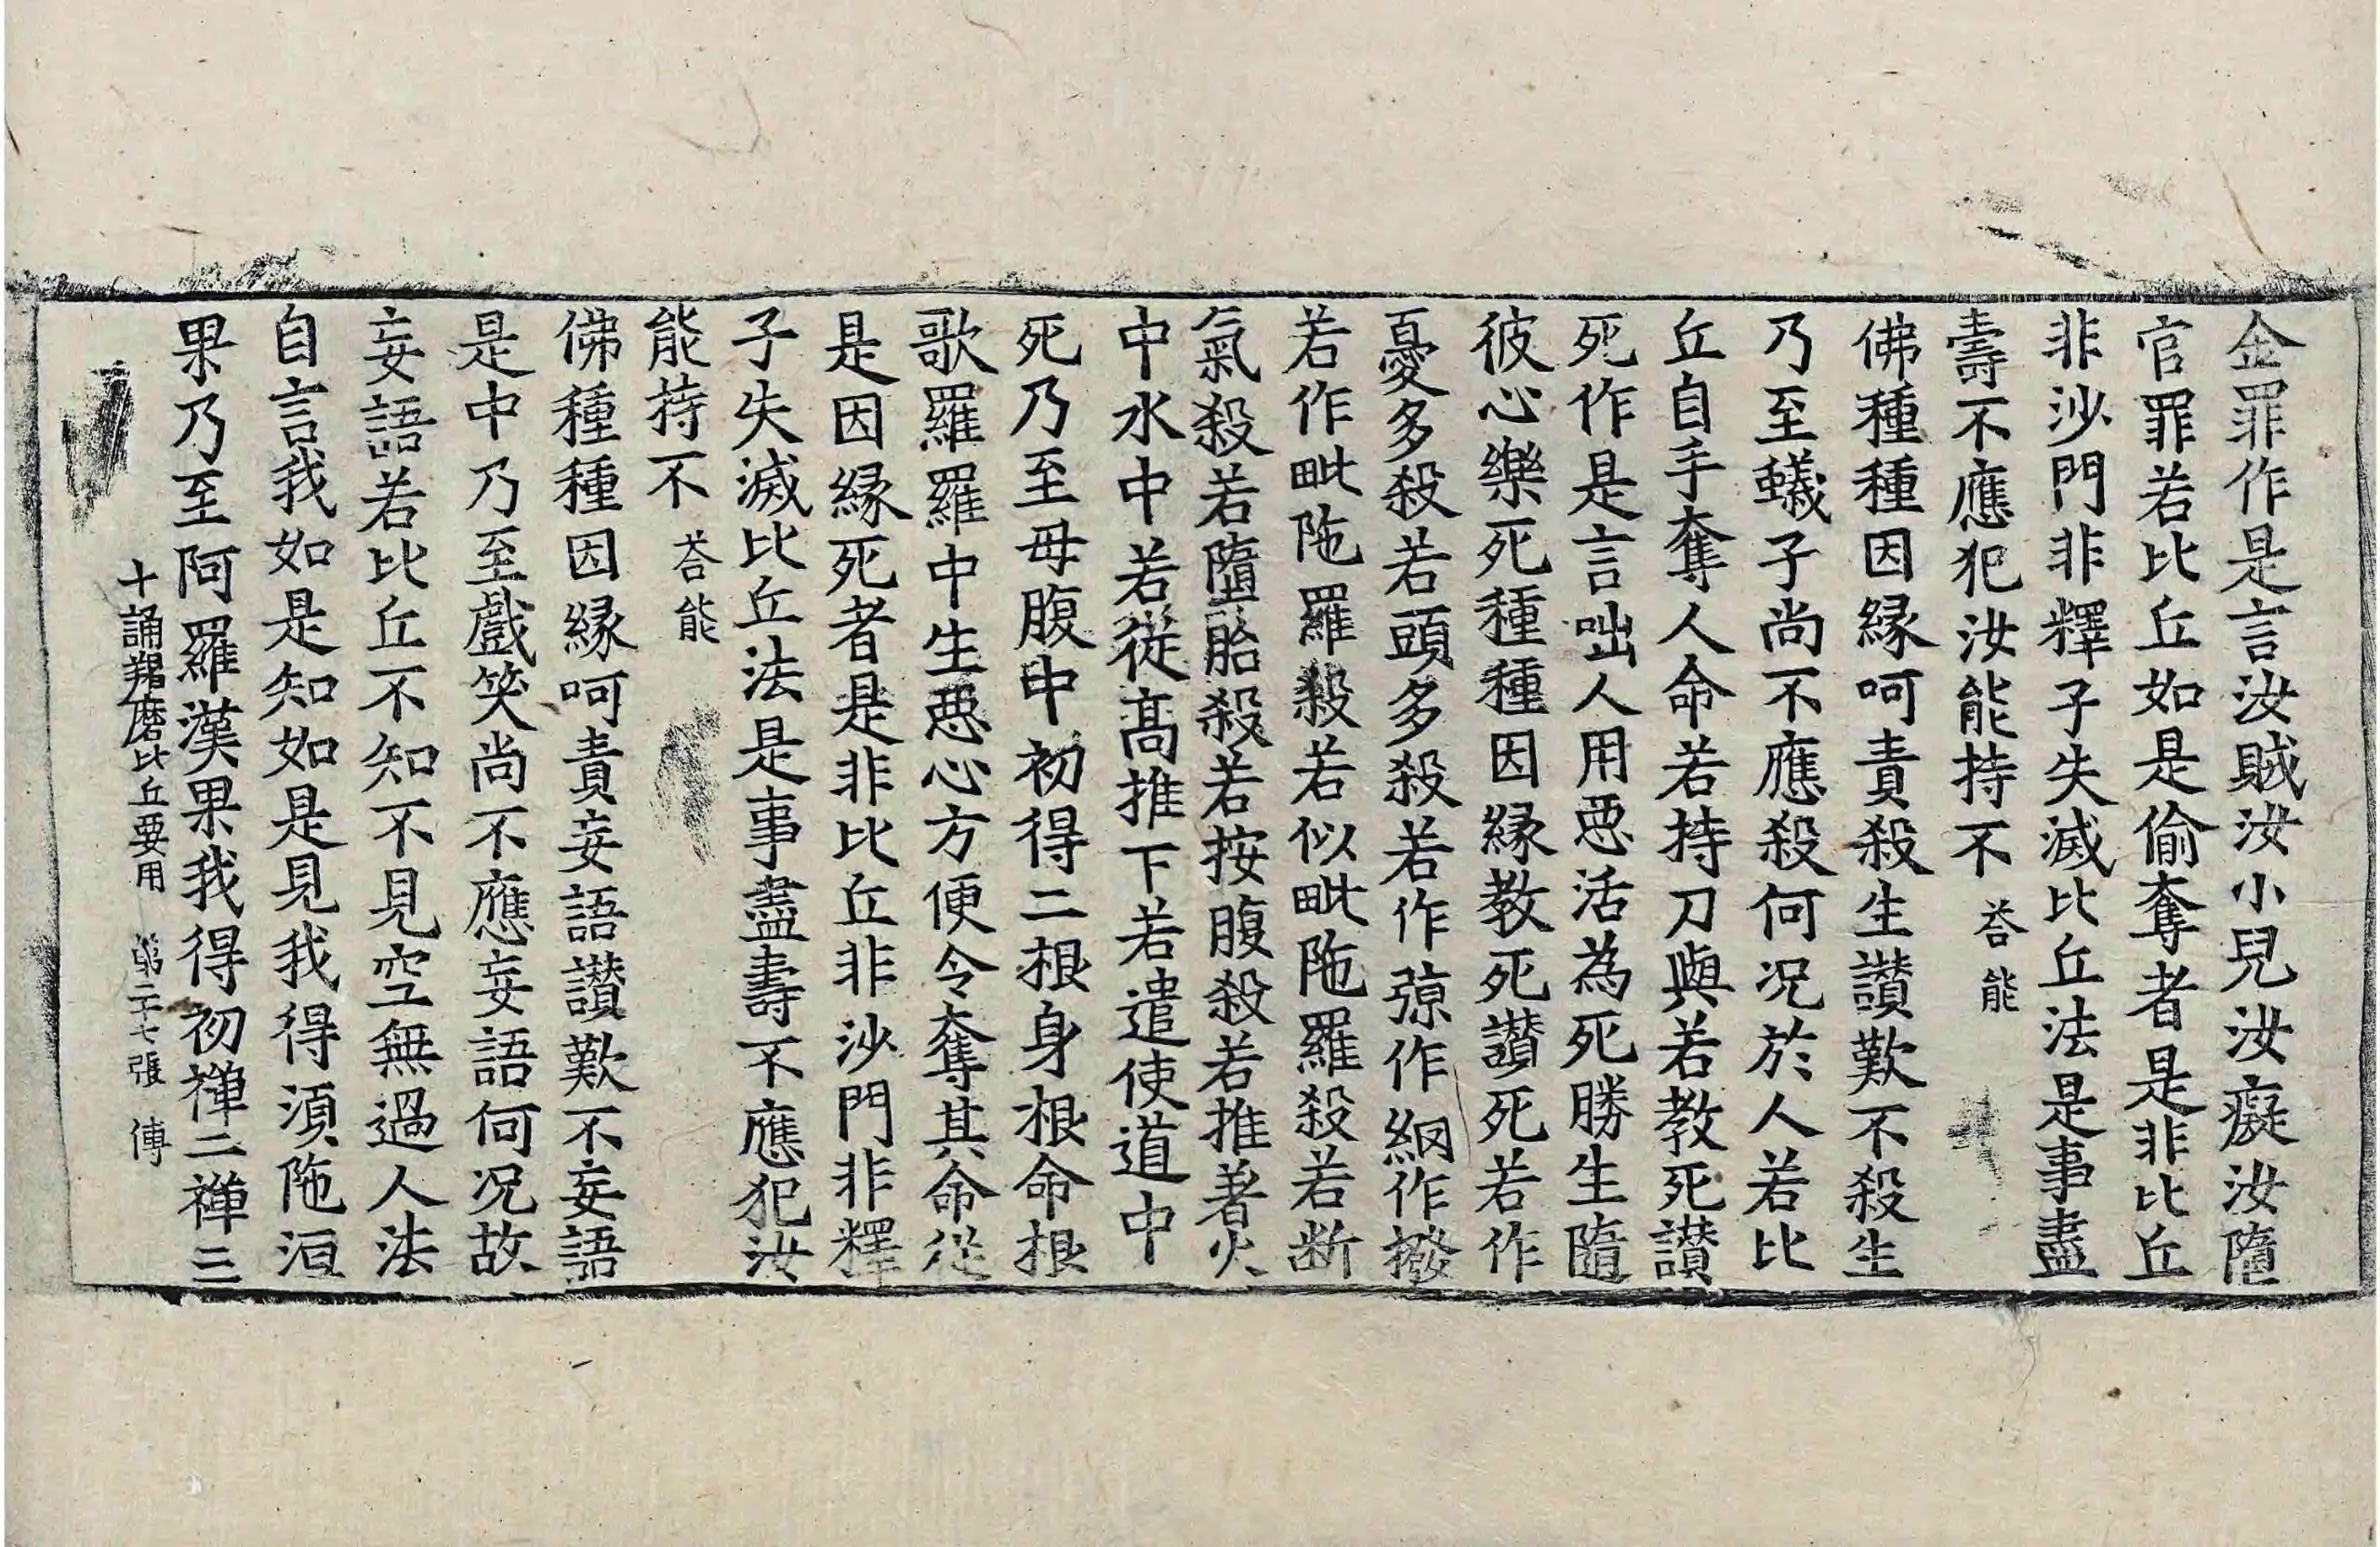 金罪作是言汝賊汝小兒汝癡汝墮
官罪若比丘如是偷奪者是非比丘
非沙門非釋子失滅比丘法是事盡
壽不應犯汝能持不 荅能
佛種種因緣呵責殺生讃歎不殺生
乃至蟻子尚不應殺何况於人若比
丘自手奪人命若持刀與若教死讃
死作是言咄人用惡活為死勝生隨
彼心樂死種種因緣教死讃死若作
憂多殺若頭多殺若作弶作網作撥
若作毗陁羅殺若似毗陁羅殺若断
氣殺若墮胎殺若按腹殺若推著火
中水中若從髙推下若遣使道中
死乃至母腹中初得二根身根命根
歌羅羅中生惡心方便令奪其命從
是因緣死者是非比丘非沙門非釋
子失滅比丘法是事盡壽不應犯汝
能持不 荅能
佛種種因緣呵責妄語讃歎不妄語
是中乃至戲笑尚不應妄語何况故
妄語若比丘不知不見空無過人法
自言我如是知如是見我得湏陁洹
果乃至阿羅漢果我得初禅二禅三
十誦羯磨比丘要用 第二十七張 傳